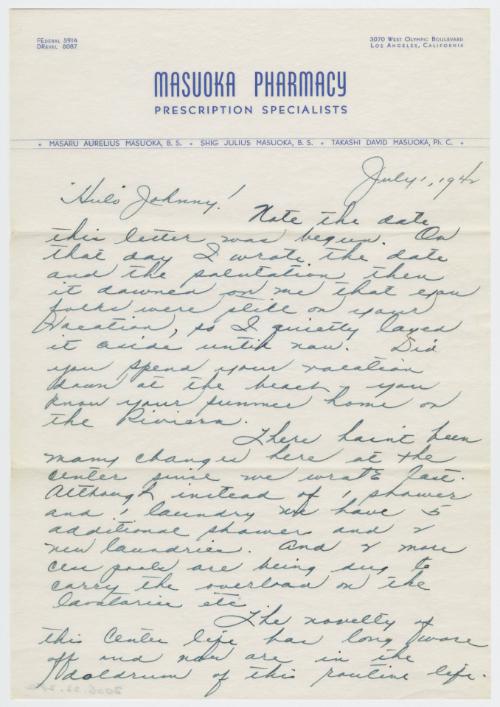 FEderal 5914
DRexel 8087
3070 West Olympic Boulevard
Los Angeles, California
MASUOKA PHARMACY
PRESCRIPTION SPECIALISTS
• MASARU AURELIUS MASUOKA, B. S. • SHIG JULIUS MASUOKA, B. S. • TAKASHI DAVID MASUOKA, Ph. C. •
July 1, 1942
"Hulo" Johnny!
Note the date
this letter was begun. On
that day I wrote the date
and the salutation, then
it dawned on me that you
folks were still on your
Vacation, so I quietly layed
it aside until now. Did
you spend your vacation
down at the beach, you
know your summer home on
the Riviera.
There hain't been
many changes here at the
center since we wrote last.
Although instead of 1 shower
and 1 laundry we have 5
additional showers and 2
new laundries. And 2 more
cess pools are being dug to
carry the overload on the
lavatories etc
The novelty of
this Center life has long wore
off and now are in the
doldrum of this routine life.